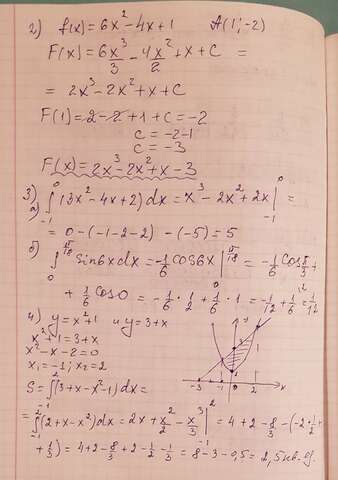 2) f(x)=6x²-4x+1 A(1;-2)
F(x)=6x³/3-4x²/2+x+C =
= 2x³-2x²+x+C
F(1)=2-2+1+C=-2
C=-2-1
C=-3
F(x)=2x³-2x²+x-3
3) a) ∫₋₁⁰(3x²-4x+2)dx=x³-2x²+2x|₋₁⁰ =
= 0-(-1-2-2)-(-5)=5
б) ∫₀^(π/18) sin6xdx=-1/6 cos6x|₀^(π/18) = -1/6 cos π/3+
+1/6 cos0=-1/6·1/2+1/6·1=-1/12+1/6=1/12
4) y=x²+1 и y=3+x
x²+1=3+x
x²-x-2=0
x₁=-1; x₂=2
S=∫₋₁²(3+x-x²-1)dx=
=∫₋₁²(2+x-x²)dx=2x+x²/2-x³/3|₋₁²=4+2-8/3-(-2+1/2+
+1/3)=4+2-8/3+2-1/2-1/3=8-3-0,5=2,5кв.ед.
-3 -1 0 x
1